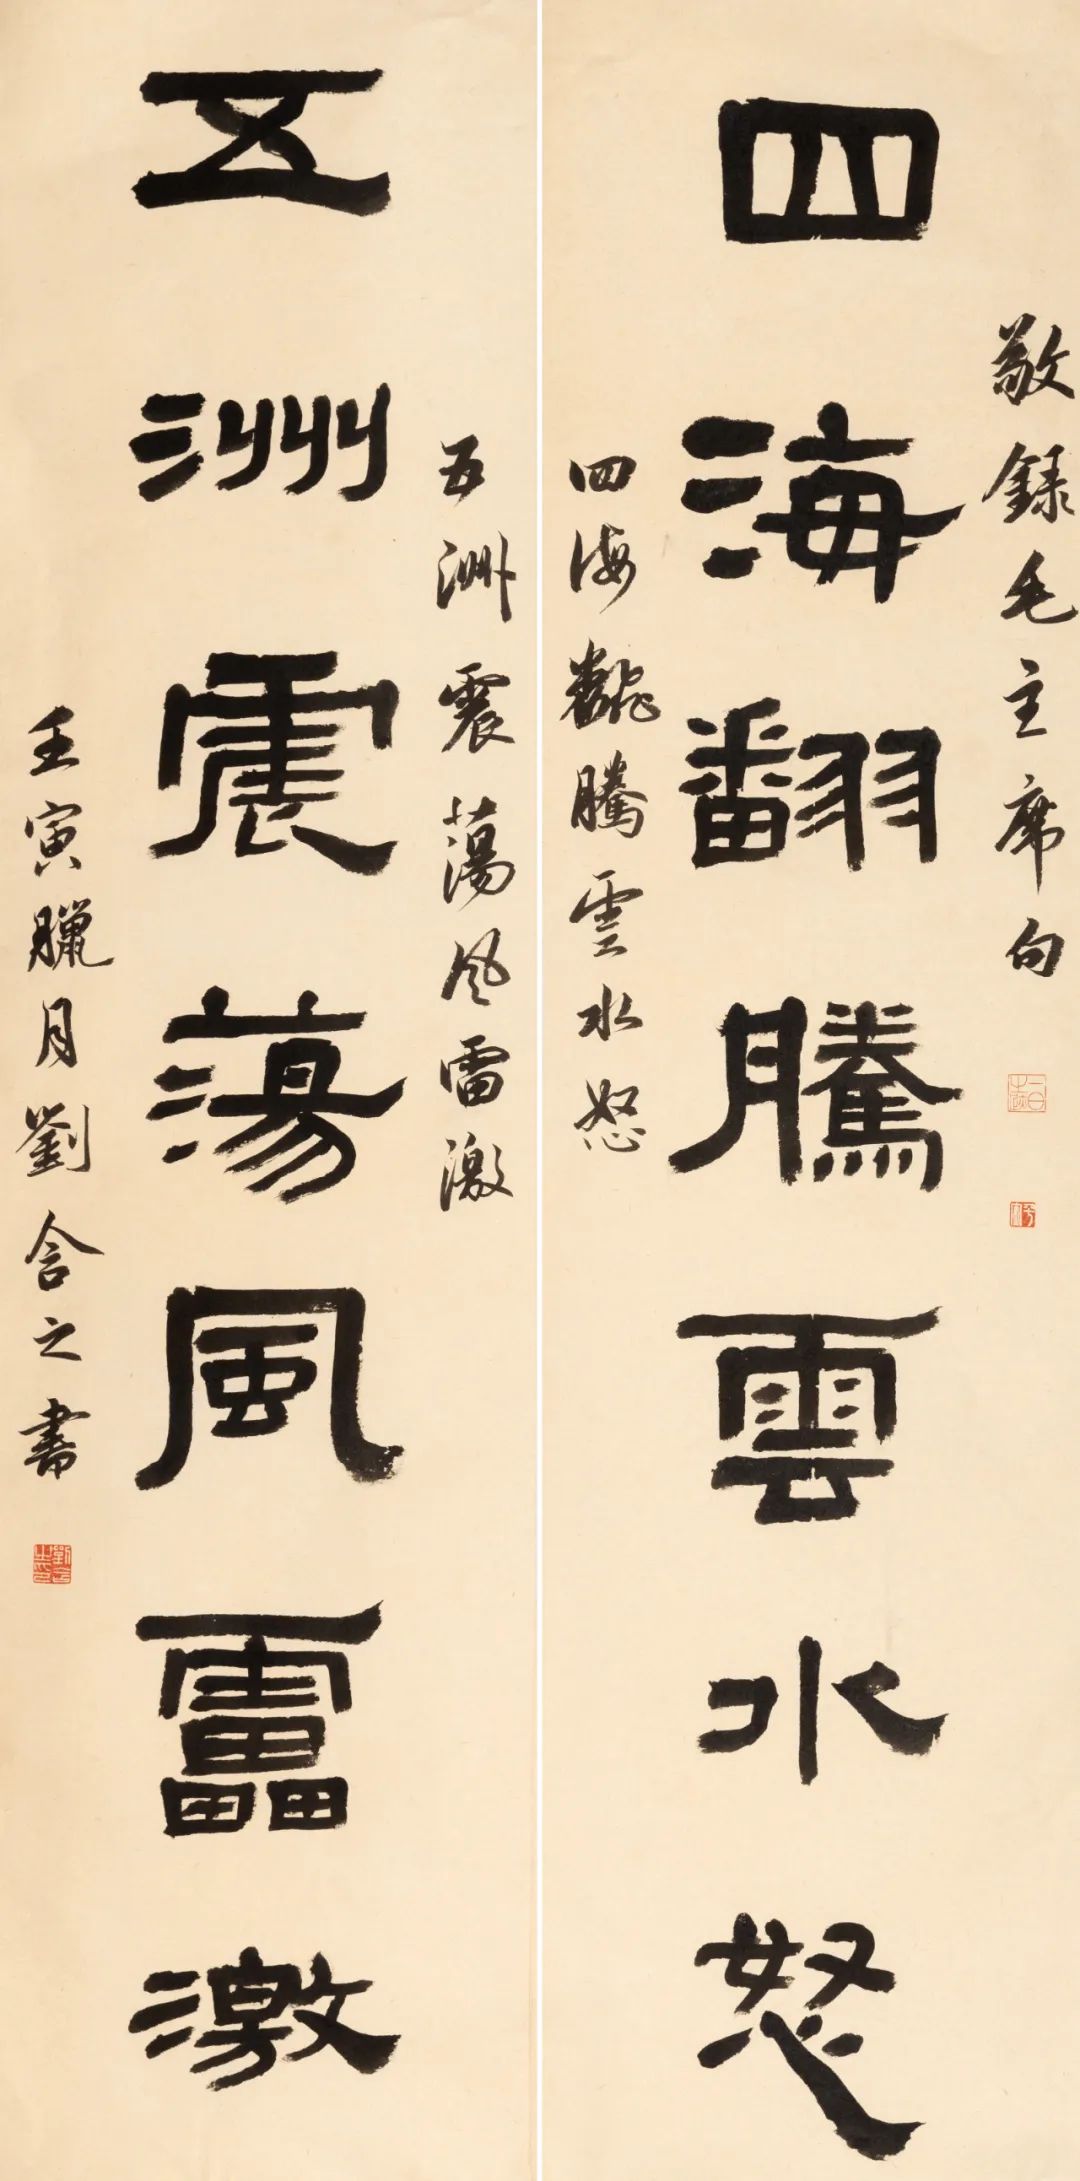 敬録毛主席句
四海翻騰雲水怒
四海飜騰雲水怒
五洲震蕩風雷激
五洲震蕩風靁激
壬寅臘月劉含之書